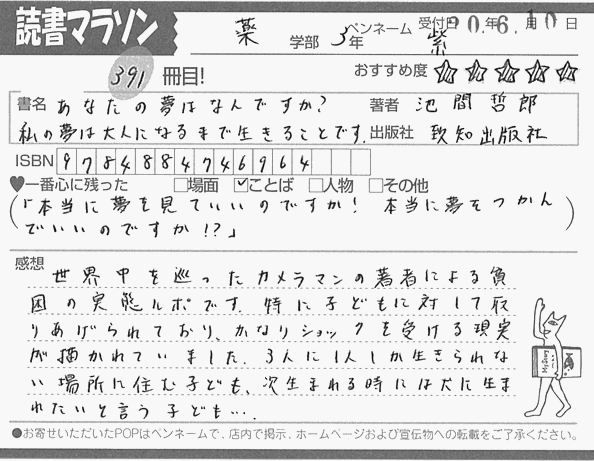 読書マラソン
薬 学部 3年 ペンネーム 紫 受付日 20.年6.月10日
391 冊目! おすすめ度 ☆☆☆☆☆
書名 あなたの夢はなんですか? 著者 池間哲郎
私の夢は大人になるまで生きることです. 出版社 致知出版社
ISBN 9784884746964
♥一番心に残った □場面 ☑ことば □人物 □その他
(「本当に夢を見ていいのですか! 本当に夢をつかん
でいいのですか!?」)
感想 世界中を巡ったカメラマンの著者による貧
困の実態ルポです. 特に子どもに対して取
りあげられており、かなりショックを受ける現実
が描かれていました. 3人に1人しか生きられな
い場所に住む子ども、次生まれる時には犬に生ま
れたいと言う子ども….
●お寄せいただいたPOPはペンネームで、店内で掲示、ホームページおよび宣伝物への転載をご了承ください。